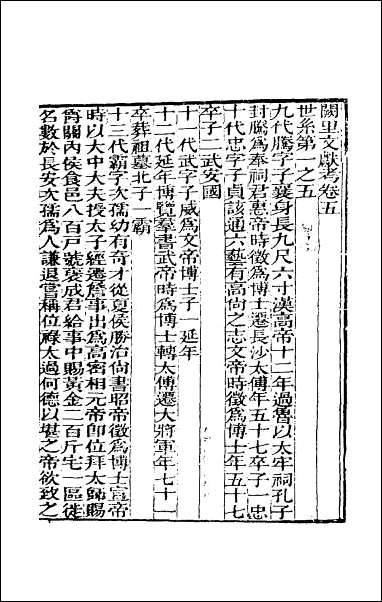 闕里文獻考卷五
世系第一之五
九代騰字子襄身長九尺六寸漢高帝十二年過魯以太牢祠孔子
封騰爲奉祠君惠帝時徵爲博士遷長沙太傅年五十七卒子一忠
十代忠字子貞該通六藝有高尚之志文帝時徵爲博士年五十七
卒子二武安國
十一代武字子威爲文帝博士子一延年
十二代延年博覽羣書武帝時爲博士轉太傅遷大將軍年七十一
卒葬祖墓北子一霸
十三代霸字次孺幼有奇才從夏侯勝治尚書昭帝徵爲博士宣帝
時以太中大夫授太子經遷詹事出爲高密相元帝卽位拜太師賜
爵關內侯食邑八百戸號襃成君給事中賜黃金二百斤宅一區徙
名數於長安次孺爲人謙退嘗稱位祿太過何德以堪之帝欲致之